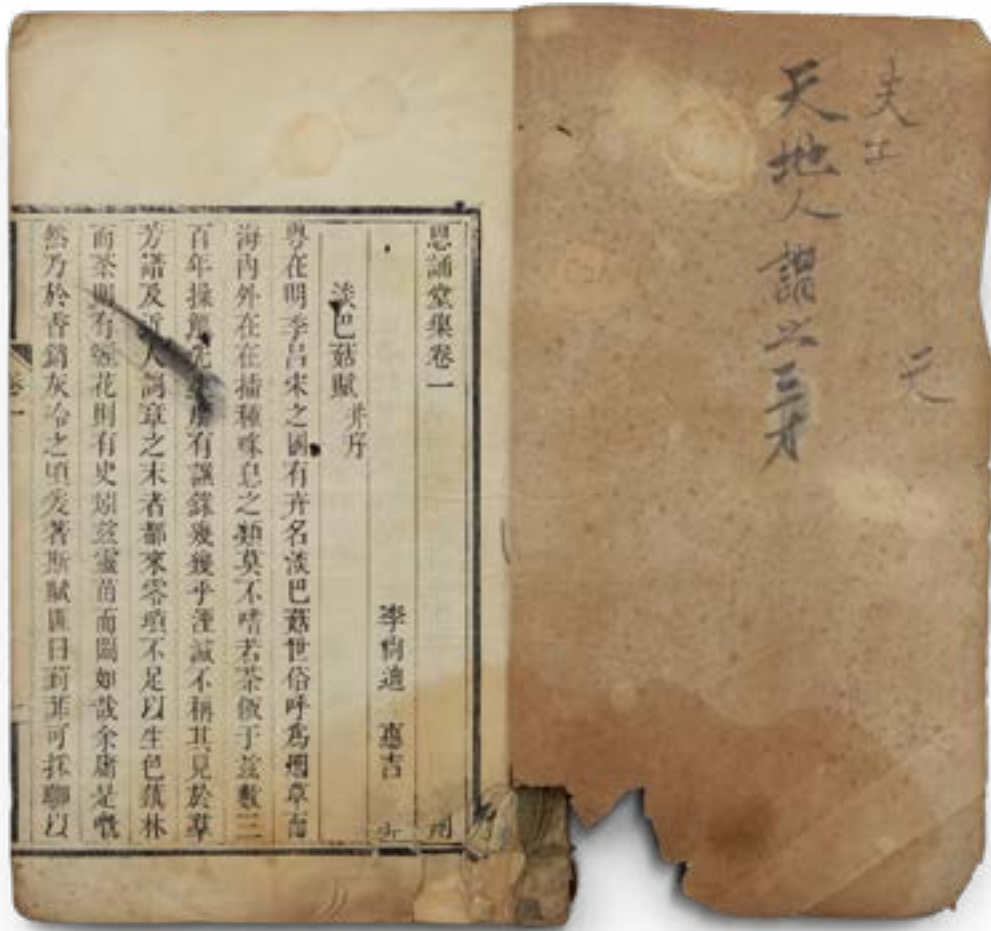 夫
天地人謂之三才
天
恩誦堂集卷一
李尙迪 惠吉
淡巴菰賦 幷序
粵在明季呂宋之國有卉名淡巴菰世俗呼爲烟草而
海內外在在播種咮息之類莫不嗜若茶飯于茲數三
百年操觚先有譜錄幾幾乎湮滅不稱其見於羣
芳譜及近人詞章之末者都來零瑣不足以生色蓺林
而茶則有經花則有史茲靈苗而闕如哉余庸是慨
然乃於香銷灰冷之頃爰著斯賦匪曰葑菲可採聊以
卷一